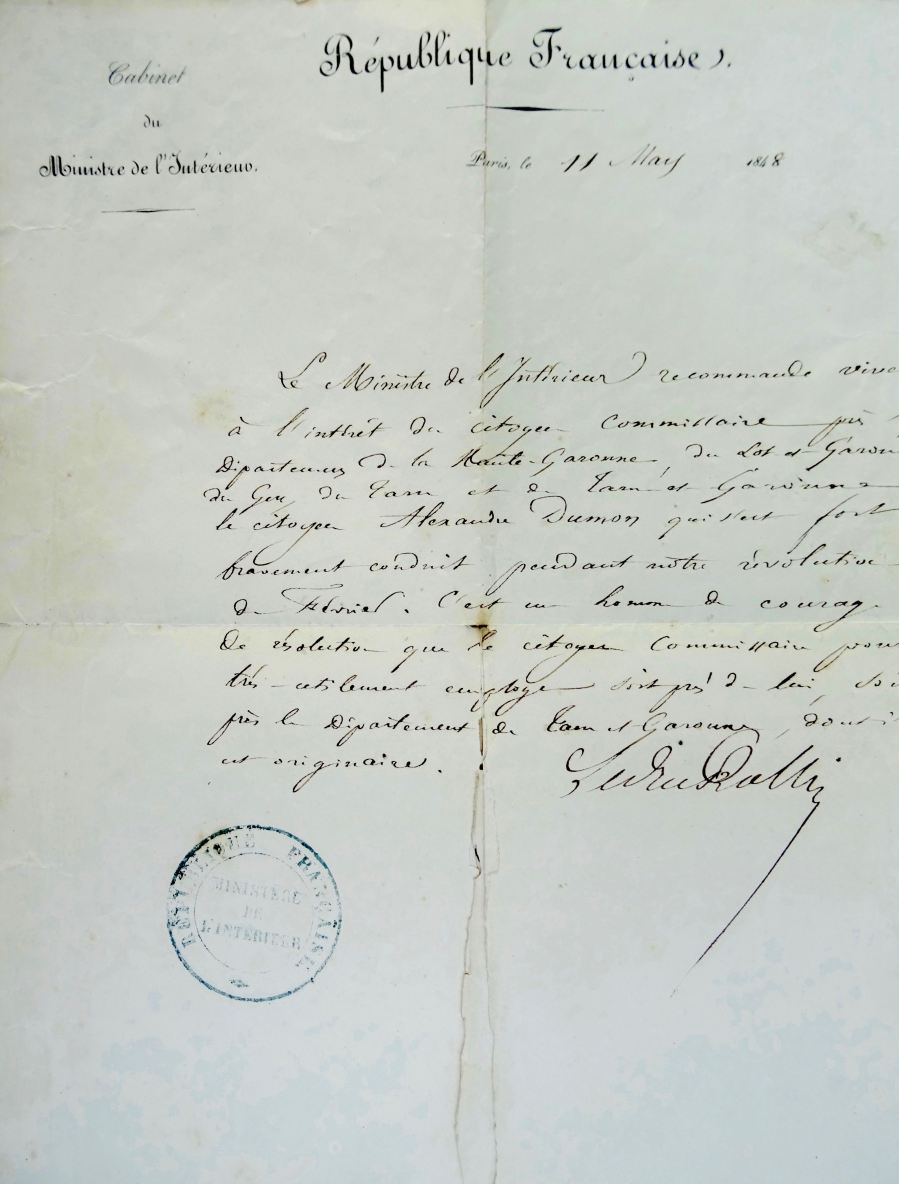 République Française.
Cabinet
du
Ministre de l'Intérieur.
Paris, le 11 Mars 1848
Le Ministre de l'Intérieur recommande vive
à l'intérêt du citoyen Commissaire près
Départemens de la Haute-Garonne, du Lot et Garon
du Gers, du Tarn et de Tarn et Garonne
le citoyen Alexandre Dumon qui s'est fort
bravement conduit pendant notre révolution
de Février. C'est un homme de courage
de résolution que le citoyen Commissaire pour
très-utilement employer soit près de lui, soi
près le Département de Tarn et Garonne, dont i
est originaire.
Ledru Rollin
RÉPUBLIQUE FRANÇAISE
MINISTÈRE
DE
L'INTÉRIEUR